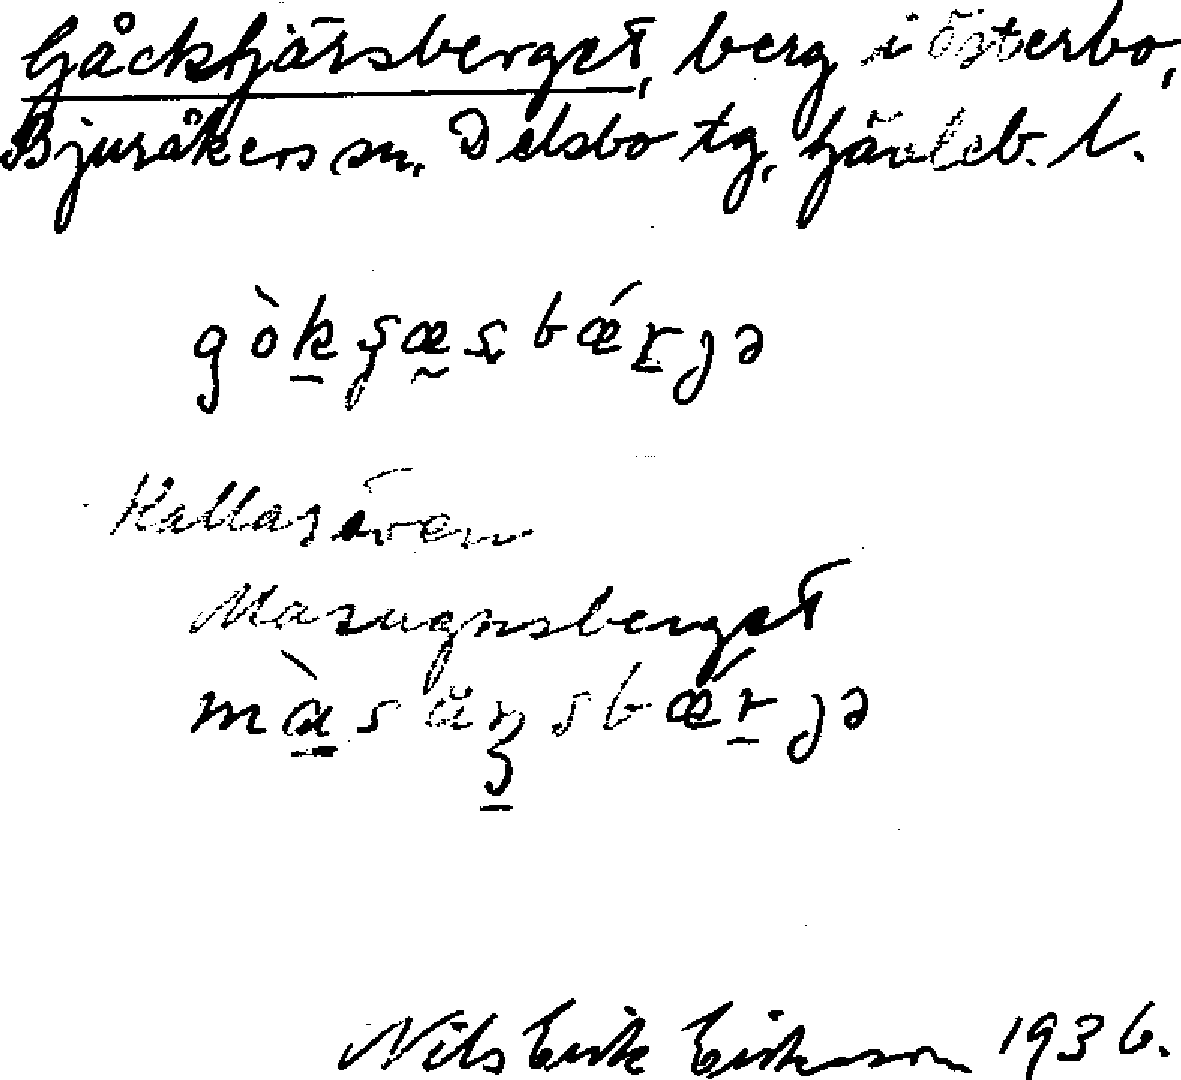 Gåcktjärsberget, berg i Österbo,
Bjuråkers sn. Delsbo tg, Gävleb. l.
gò̱kʂæ̰ʂbǽṟɟə
Kallas även
Masugnsberget
mɑ̱̀sŭŋ̱sbǽṟɟə
Nils Erik Eriksson 1936.